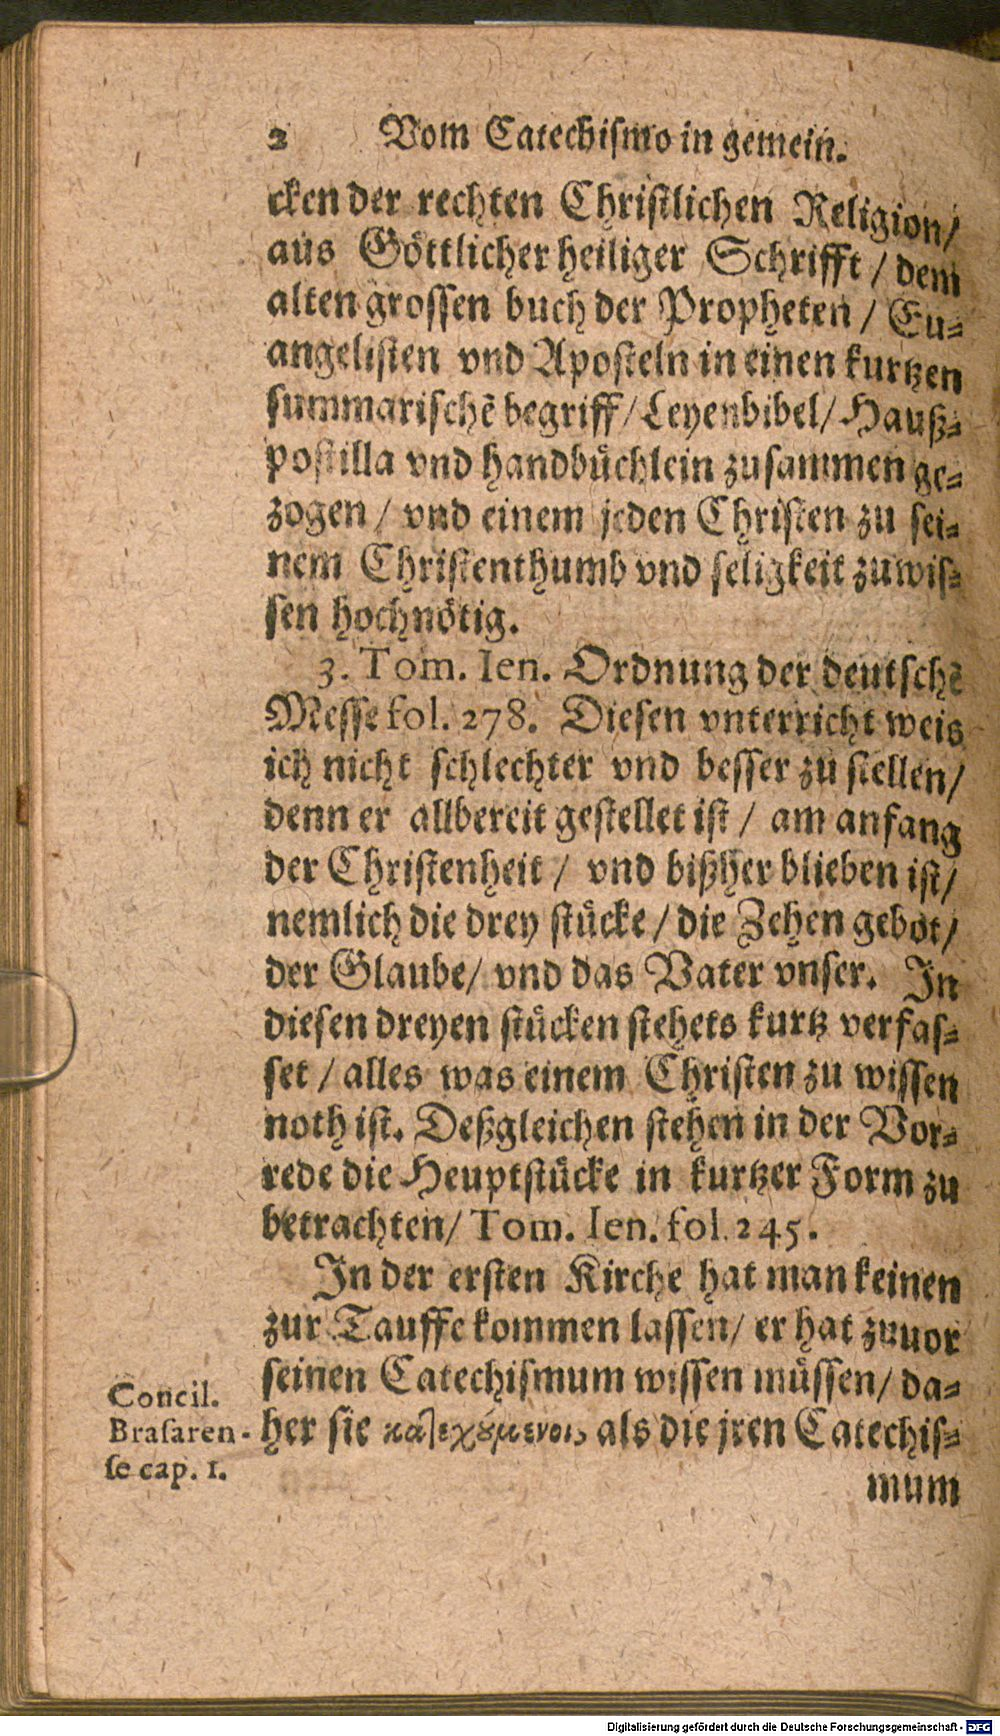 2 Vom Catechismo in gemein.
cken der rechten Christlichen Religion/
aus Göttlicher heiliger Schrifft / dem
alten grossen buch der Propheten / Eu-
angelisten vnd Aposteln in einen kurtzen
summarischē begriff/ Leyenbibel/ Hauß-
postilla vnd handbüchlein zusammen ge-
zogen / vnd einem jeden Christen zu sei-
nem Christenthumb vnd seligkeit zu wis-
sen hochnötig.
3. Tom. Ien. Ordnung der deutschē
Messe fol. 278. Diesen vnterricht weis
ich nicht schlechter vnd besser zu stellen/
denn er allbereit gestellet ist / am anfang
der Christenheit / vnd bißher blieben ist/
nemlich die drey stücke / die Zehen gebot/
der Glaube/ vnd das Vater vnser. In
diesen dreyen stücken stehets kurtz verfas-
set / alles was einem Christen zu wissen
noth ist. Deßgleichen stehen in der Vor-
rede die Heuptstücke in kurtzer Form zu
betrachten/ Tom. Ien. fol. 245.
In der ersten Kirche hat man keinen
zur Tauffe kommen lassen/ er hat zuuor
seinen Catechismum wissen müssen/ da-
her sie κατεχούμενοι, als die jren Catechis-
mum
Concil.
Braſaren-
ſe cap. 1.
Digitalisierung gefördert durch die Deutsche Forschungsgemeinschaft - DFG